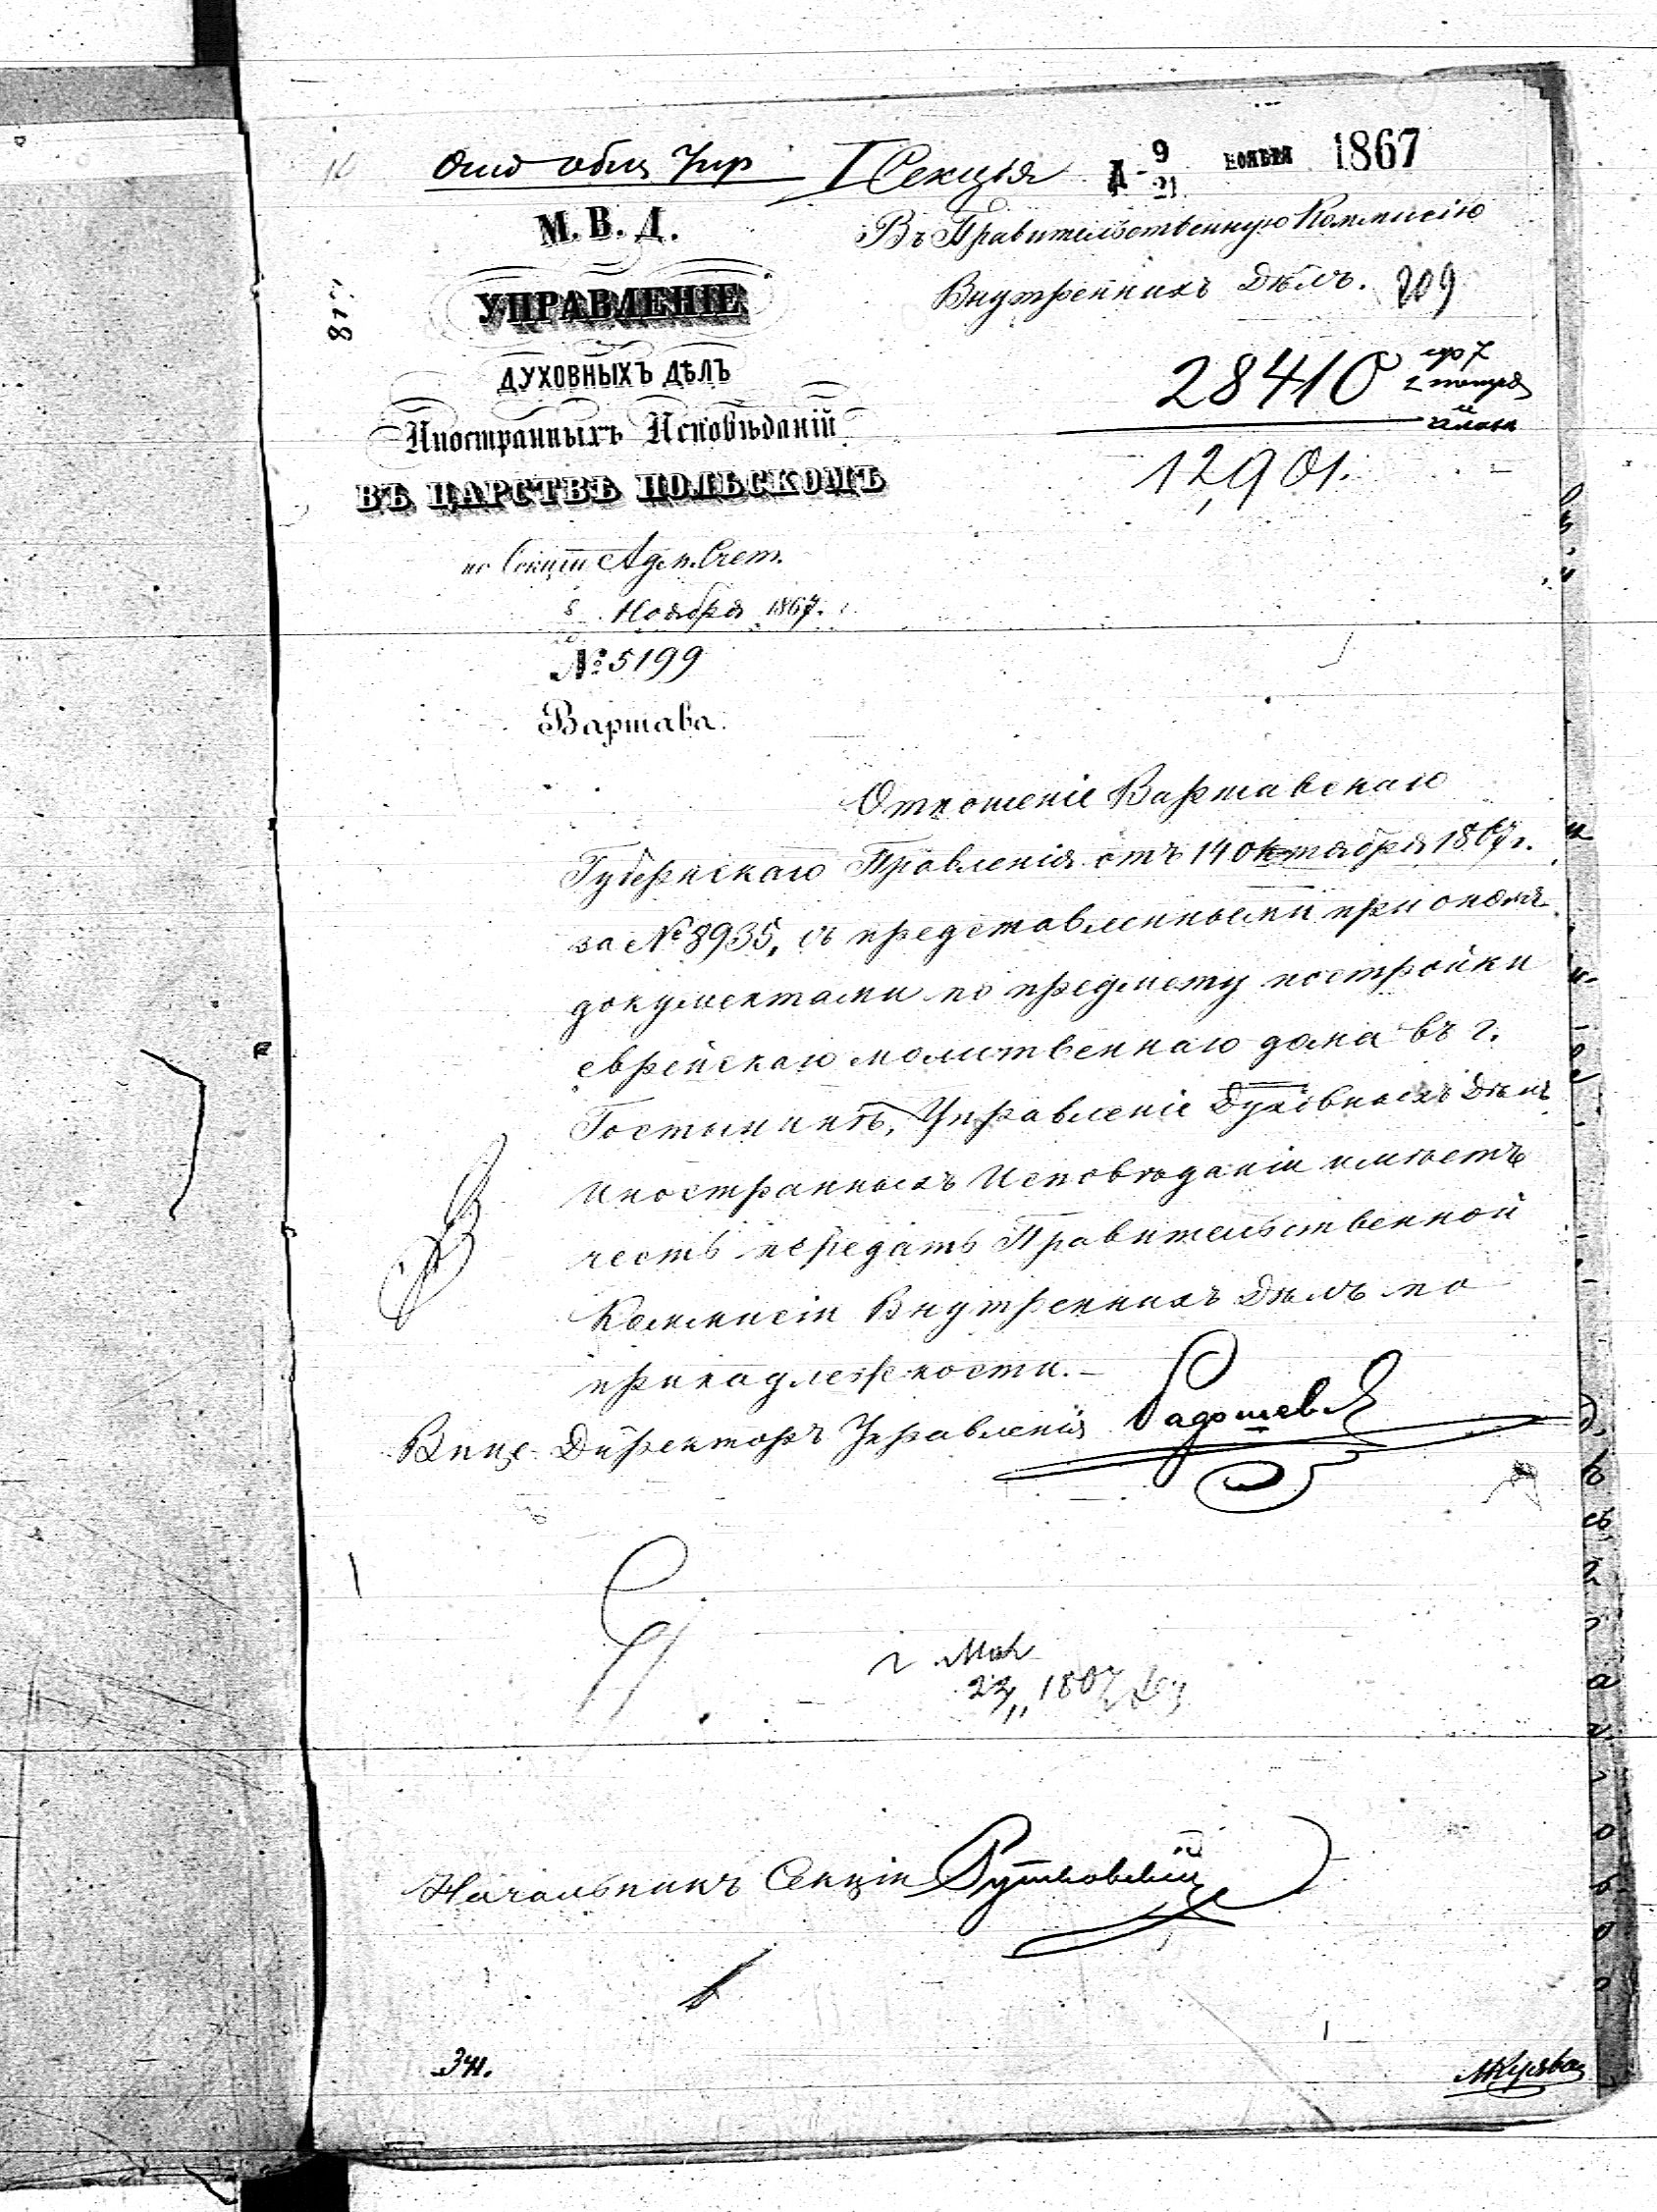 I Секція
9/21 НОЯБРЯ 1867
М. В. Д.
УПРАВЛЕНІЕ
ДУХОВНЫХЪ ДѢЛЪ
Иностранныхъ Исповѣданій
ВЪ ЦАРСТВѢ ПОЛЬСКОМЪ
по Секціи
8 Ноября 1867.
№ 5199
Варшава.
Въ Правительственную Коммисію
Внутреннихъ Дѣлъ. 209
28410
12901.
Отношеніе Варшавскаго
Губернскаго Правленія отъ 14 Октября 1867 г.
за № 8935, съ представленными при ономъ
документами по предмету постройки
еврейскаго молитвеннаго дома въ г.
Гостынинѣ, Управленіе Духовныхъ Дѣлъ
Иностранныхъ Исповѣданій имѣетъ
честь передать Правительственной
Коммисіи Внутреннихъ Дѣлъ по
принадлежности.–
Вице-Директоръ Управленія
Начальникъ Секціи